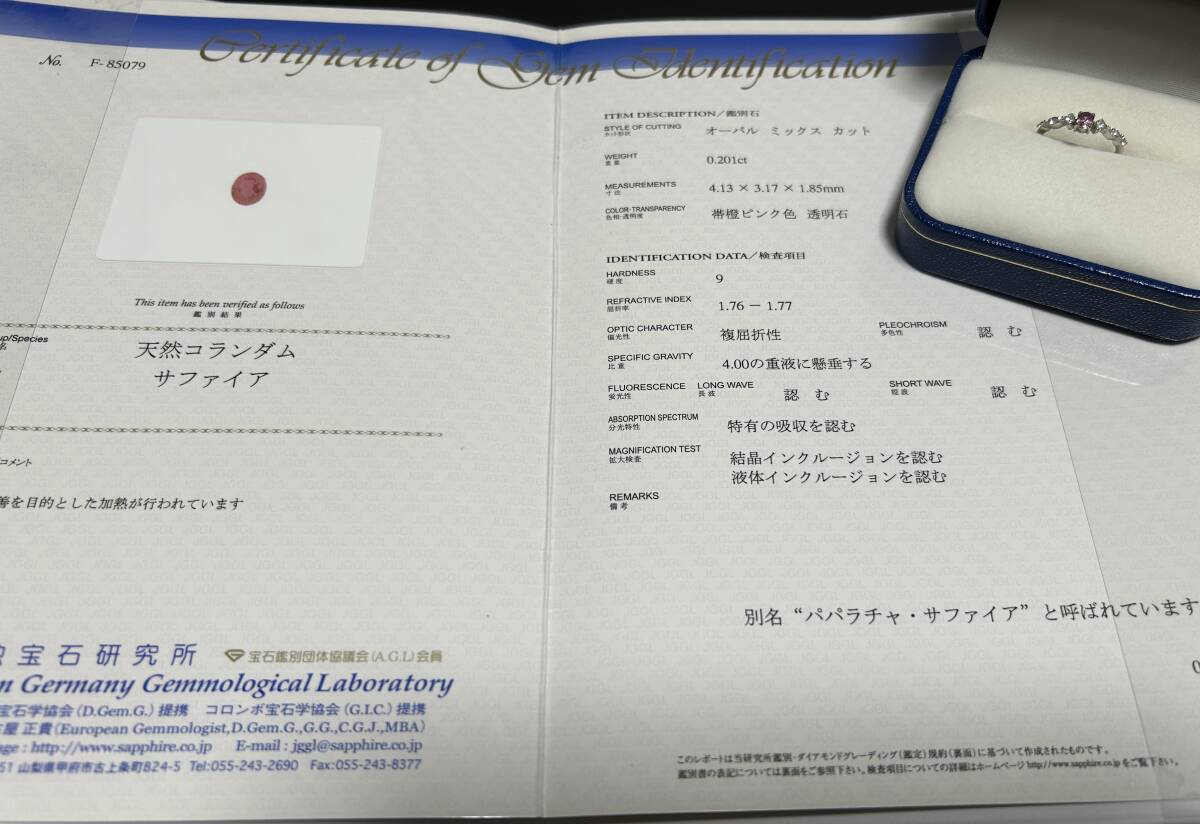 Certificate of Gem Identification
No. F-85079
This item has been verified as follows
鑑別結果
up/Species
名
天然コランダム
サファイア
コメント
善を目的とした加熱が行われています
宝石研究所
宝石鑑別団体協議会(A.G.L)会員
n Germany Gemmological Laboratory
宝石学協会(D.Gem.G.)提携 コロンボ宝石学協会(G.I.C.)提携
屋 正貴(European Gemmologist,D.Gem.G.,G.G.,C.G.J.,MBA)
age : http://www.sapphire.co.jp E-mail : jggl@sapphire.co.jp
51 山梨県甲府市古上条町824-5 Tel:055-243-2690 Fax:055-243-8377
ITEM DESCRIPTION/鑑別石
STYLE OF CUTTING
カット形状
オーバル ミックス カット
WEIGHT
重量
0.201ct
MEASUREMENTS
寸法
4.13 × 3.17 × 1.85mm
COLOR·TRANSPARENCY
色相·透明度
帯橙ピンク色 透明石
IDENTIFICATION DATA/検査項目
HARDNESS
硬度
9
REFRACTIVE INDEX
屈折率
1.76 － 1.77
OPTIC CHARACTER
偏光性
複屈折性
PLEOCHROISM
多色性
認 む
SPECIFIC GRAVITY
比重
4.00の重液に懸垂する
FLUORESCENCE
蛍光性
LONG WAVE
長波
認 む
SHORT WAVE
短波
認 む
ABSORPTION SPECTRUM
分光特性
特有の吸収を認む
MAGNIFICATION TEST
拡大検査
結晶インクルージョンを認む
液体インクルージョンを認む
REMARKS
備考
別名 “パパラチャ・サファイア” と呼ばれています
0
このレポートは当研究所鑑別・ダイアモンドグレーディング(鑑定)規約(裏面)に基づいて作成されたものです。
鑑別書の表記については裏面をご参照下さい。検査項目についての詳細はホームページhttp://www.sapphire.co.jpをご覧下さい。